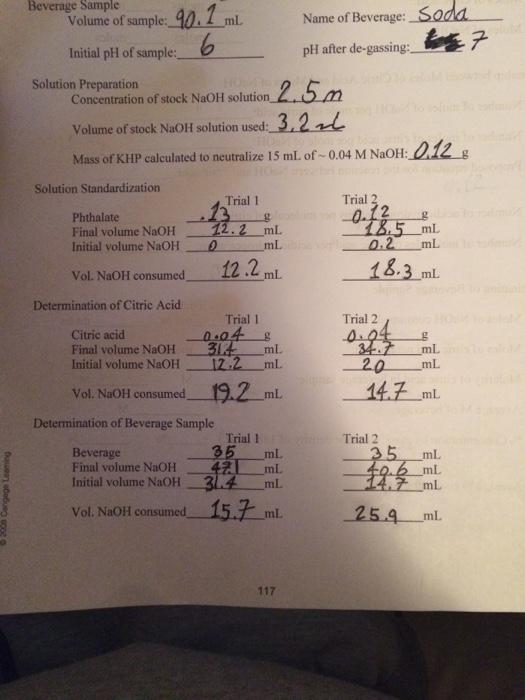 Beverage Sample
Volume of sample: 90.1 mL Name of Beverage: Soda
Initial pH of sample: 6 pH after de-gassing: 7
Solution Preparation
Concentration of stock NaOH solution 2.5 m
Volume of stock NaOH solution used: 3.2 mL
Mass of KHP calculated to neutralize 15 mL of ~ 0.04 M NaOH: 0.12 g
Solution Standardization
Trial 1 Trial 2
Phthalate .13 g 0.12 g
Final volume NaOH 12.2 mL 18.5 mL
Initial volume NaOH 0 mL 0.2 mL
Vol. NaOH consumed 12.2 mL 18.3 mL
Determination of Citric Acid
Trial 1 Trial 2
Citric acid 0.04 g 0.04 g
Final volume NaOH 31.4 mL 34.7 mL
Initial volume NaOH 12.2 mL 20 mL
Vol. NaOH consumed 19.2 mL 14.7 mL
Determination of Beverage Sample
Trial 1 Trial 2
Beverage 35 mL 35 mL
Final volume NaOH 47.1 mL 40.6 mL
Initial volume NaOH 31.4 mL 14.7 mL
Vol. NaOH consumed 15.7 mL 25.9 mL
© 2008 Cengage Learning
117